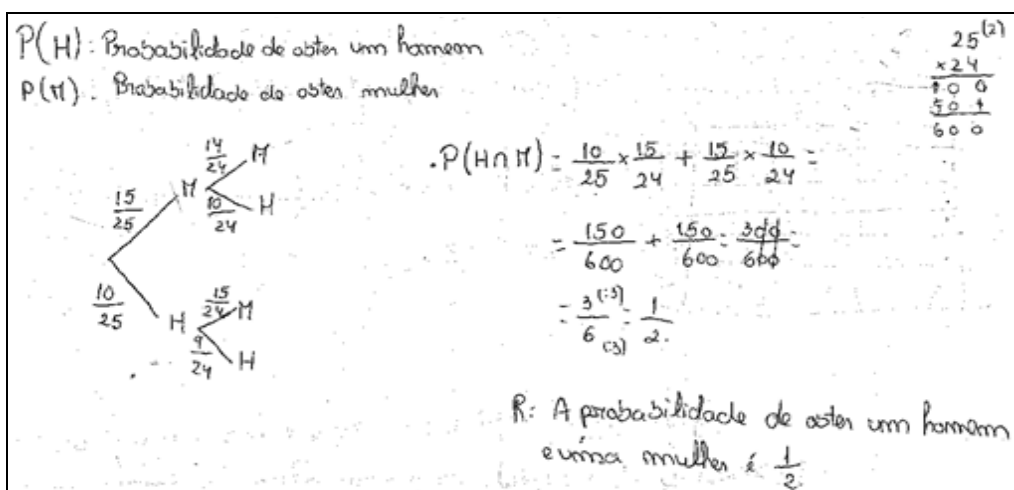 P(H): Probabilidade de obter um homem
P(M). Probabilidade de obter mulher
25 (2)
×24
100
50+
600
14/24 M
15/25 M
10/24 H
10/25 H
15/24 M
9/24 H
.P(H∩M) = 10/25 × 15/24 + 15/25 × 10/24 =
= 150/600 + 150/600 = 300/600 =
= 3 (:3)/6 (:3) = 1/2.
R: A probabilidade de obter um homem
e uma mulher é 1/2